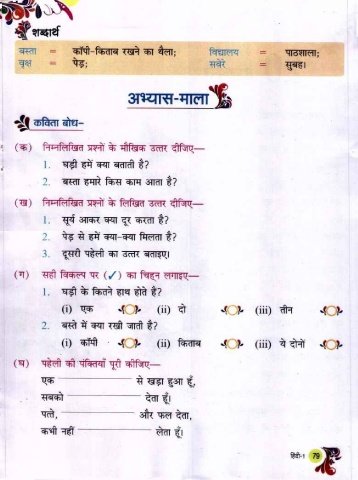 शब्दार्थ
बस्ता = कॉपी-किताब रखने का थैला; विद्यालय = पाठशाला;
वृक्ष = पेड़; सवेरे = सुबह।
अभ्यास-माला
कविता बोध–
(क) निम्नलिखित प्रश्नों के मौखिक उत्तर दीजिए—
1. घड़ी हमें क्या बताती है?
2. बस्ता हमारे किस काम आता है?
(ख) निम्नलिखित प्रश्नों के लिखित उत्तर दीजिए—
1. सूर्य आकर क्या दूर करता है?
2. पेड़ से हमें क्या-क्या मिलता है?
3. दूसरी पहेली का उत्तर बताइए।
(ग) सही विकल्प पर (✓) का चिह्न लगाइए—
1. घड़ी के कितने हाथ होते हैं?
(i) एक (ii) दो (iii) तीन
2. बस्ते में क्या रखी जाती है?
(i) कॉपी (ii) किताब (iii) ये दोनों
(घ) पहेली की पंक्तियाँ पूरी कीजिए—
एक ____________ से खड़ा हुआ हूँ,
सबको ____________ देता हूँ।
पत्ते, ____________ और फल देता,
कभी नहीं ____________ लेता हूँ।
हिंदी-1 79